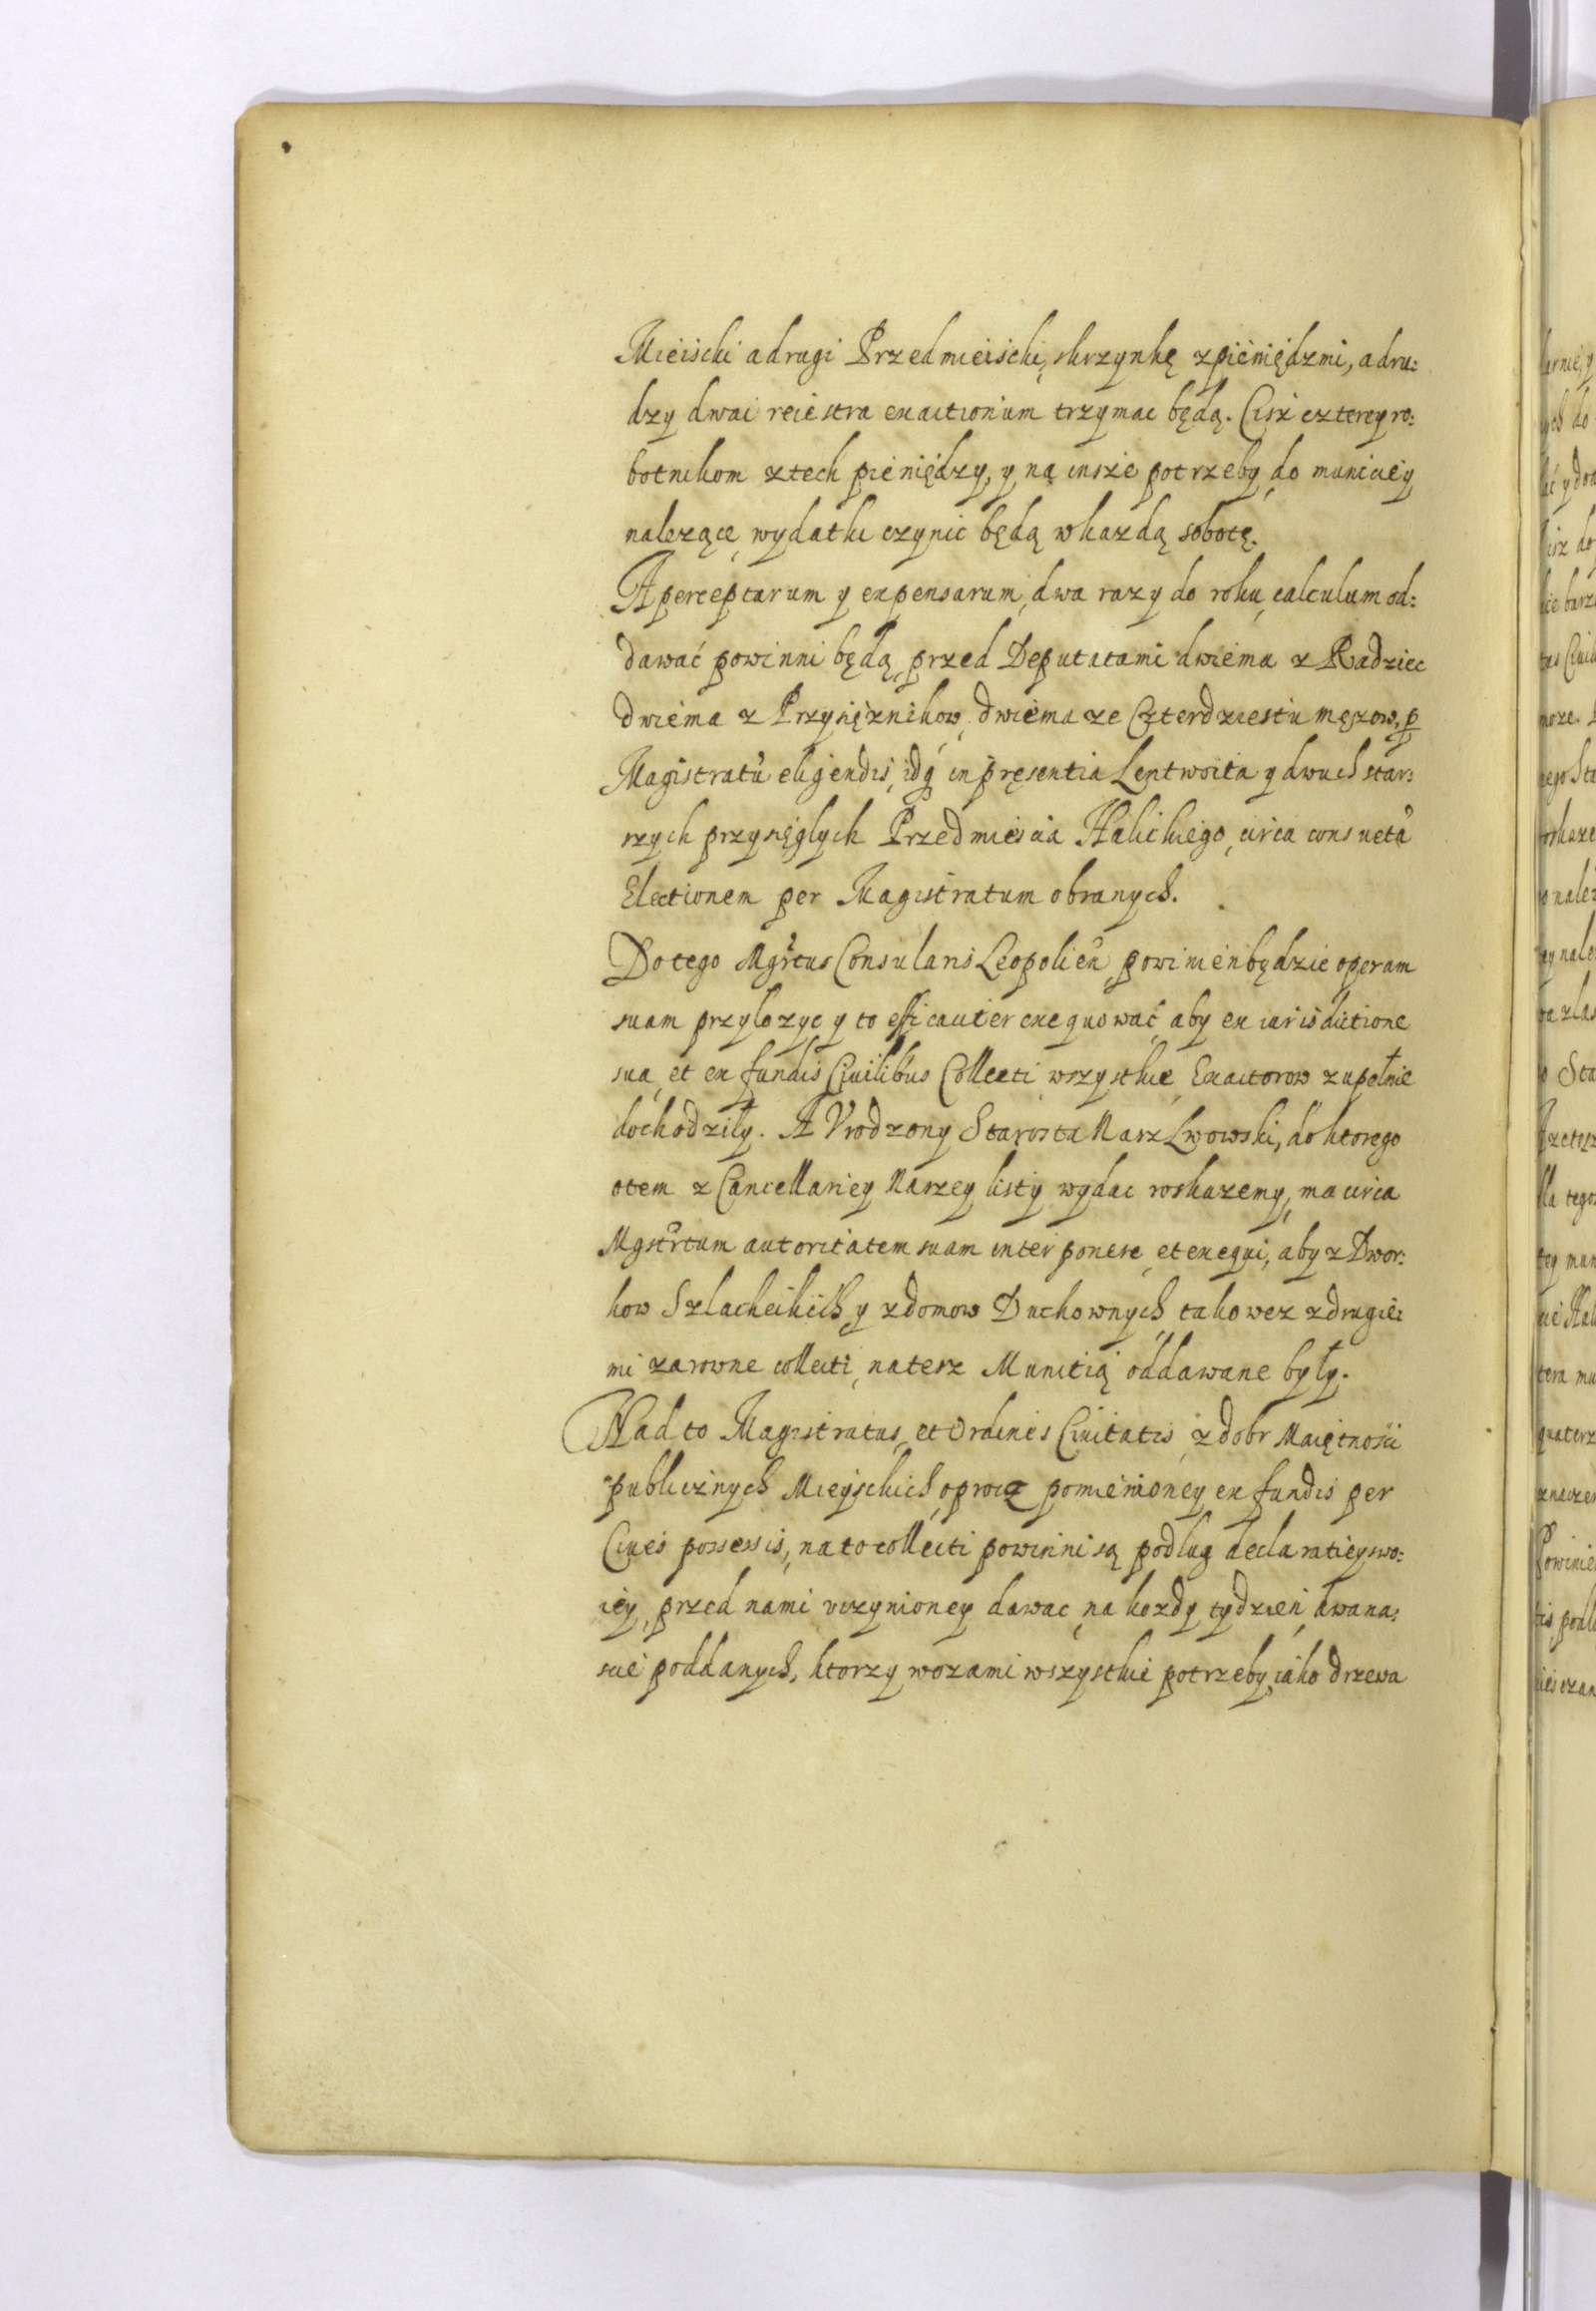 Mieiscki a drugi Przedmieiscki, skrzynkę z pieniędzmi, a dru:
dzy dwai reiestra exactionum trzymac będą. Cisz czterey ro:
botnikom z tech pieniędzy, y na insze potrzeby do municiey
nalezące, wydatki czynic będą w kazdą sobotę.
A perceptarum y expensarum, dwa razy do roku, calculum od:
dawać powinni będą, przed Deputatami dwiema z Radziec
dwiema z Przysięznikow, dwiema ze Czterdziestu męzow, p
Magistratũ eligendis, idq in pręsentia Lentwoita y dwuch star:
szych przysięglych Przedmiescia Halickiego, circa consuetã
Electionem per Magistratum obranych.
Do tego Mgrtus Consularis Leopolien powinien będzie operam
suam przylozyc y to efficaciter exequować, aby ex iurisdictione
sua, et ex fundis Ciuilibus Collecti wszystkie, Exactorow zupełnie
dochodziły. A Vrodzony Starosta Nasz Lwowski, do ktorego
o tem z Cancellariey Naszey listy wydac roskazemy, ma circa
Mgstrtum autoritatem suam interponere, et exequi, aby z Dwor:
kow Szlacheikich y z domow Duchownych, takowez z drugie:
mi zarowne collecti, na tesz Munitią oddawane były.
Nad to Magistratus, et Ordines Ciuitatis, z dobr Maiętnosci
publicznych Mieyskich, oprocz pomienioney ex fundis per
Ciues possessis, na to collecti powinni są podlug declaratiey swo:
iey, przed nami vczynioney dawac, na kozdy tydzien, dwana:
scie poddanych, ktorzy wozami wszystkie potrzeby, iako drzewa